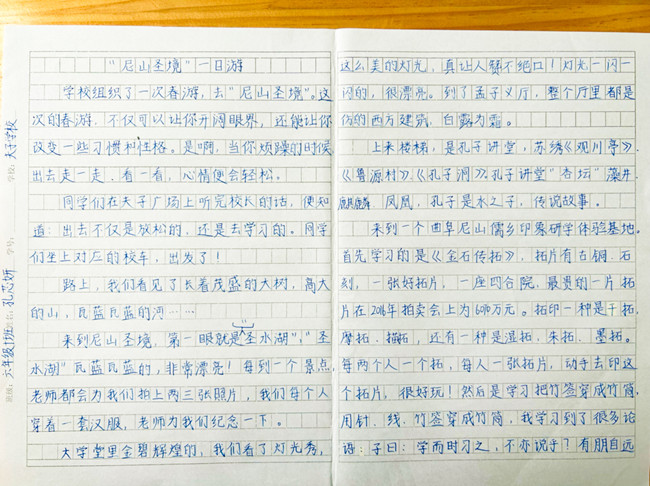 “尼山圣境”一日游
学校组织了一次春游，去“尼山圣境”。这
次的春游，不仅可以让你开阔眼界，还能让你
改变一些习惯和性格。是啊，当你烦躁的时候
出去走一走、看一看，心情便会轻松。
同学们在夫子广场上听完校长的话，使知
道：出去不仅是放松的，还是去学习的。同学
们坐上对应的校车，出发了！
路上，我们看见了长着茂盛的大树，高大
的山，瓦蓝瓦蓝的河……
来到尼山圣境，第一眼就是“圣水湖”，“圣
水湖”瓦蓝瓦蓝的，非常漂亮！每到一个景点，
老师都会为我们拍上两三张照片，我们每个人
穿着一套汉服，老师为我们纪念一下。
大学堂里金碧辉煌的，我们看了灯光秀，
学校：夫子学校
学号：
姓名：孔芯妍
班级：六年级11班
这么美的灯光，真让人赞不绝口！灯光一闪一
闪的，很漂亮。到了孟子义厅，整个厅里都是
仿的西方建筑，白露为霜。
上来楼梯，是孔子讲堂，苏绣《观川亭》、
《鲁源村》、《孔子洞》、孔子讲堂“杏坛”藻井
麒麟 凤凰，孔子是水之子，传说故事。
来到一个曲阜尼山儒乡印象研学体验基地。
首先学习的是《金石传拓》，拓片有古铜、石
刻，一张好拓片，一座四合院，最贵的一片拓
片在2016年拍卖会上为690万元。拓印一种是干拓、
摩拓、描拓，还有一种是湿拓、朱拓、墨拓。
每两个人一个拓，每人一张拓片，动手去印这
个拓片，很好玩！然后是学习把竹签穿成竹简，
用针、线、竹签穿成竹简，我学习到了很多论
语：子曰：学而时习之，不亦说乎？有朋自远